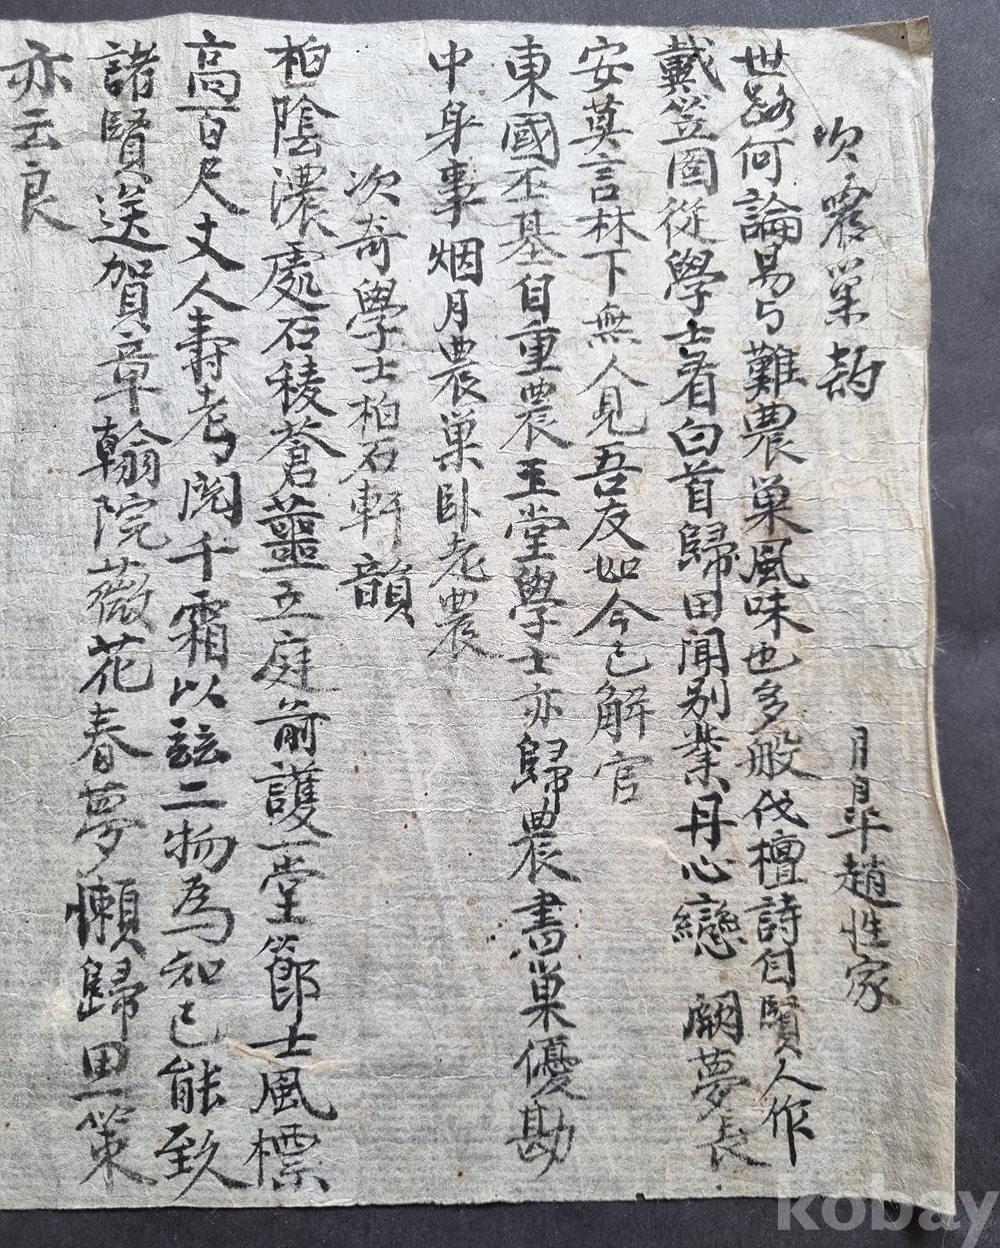 次農巢韵 月皐趙性家
世路何論易与難農巢風味也多般伐檀詩自賢人作
戴笠圖從學士看白首歸田開別業丹心戀 闕夢長
安莫言林下無人見吾友如今已解官
東國丕基自重農玉堂學士亦歸農書巢優勘
中身事烟月農巢臥老農
次奇學士柏石軒韻
柏陰濃處石稜蒼並立庭前護一堂節士風標
高百尺丈人壽考閱千霜以玆二物為知己能致
諸賢送賀章翰院薇花春夢懶歸田一策
亦云良
kobay